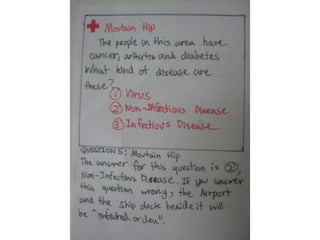 Moutain Hip
The people in this area have
cancer, arthritis and diabetes
What kind of disease are
these?
① Virus
② Non-Infectious Disease
③ Infectious Disease
QUESTION 5: Moutain Hip
The answer for this question is ②,
Non-Infectious Disease. If you answer
this question wrong, the Airport
and the ship dock beside it will
be "infected or